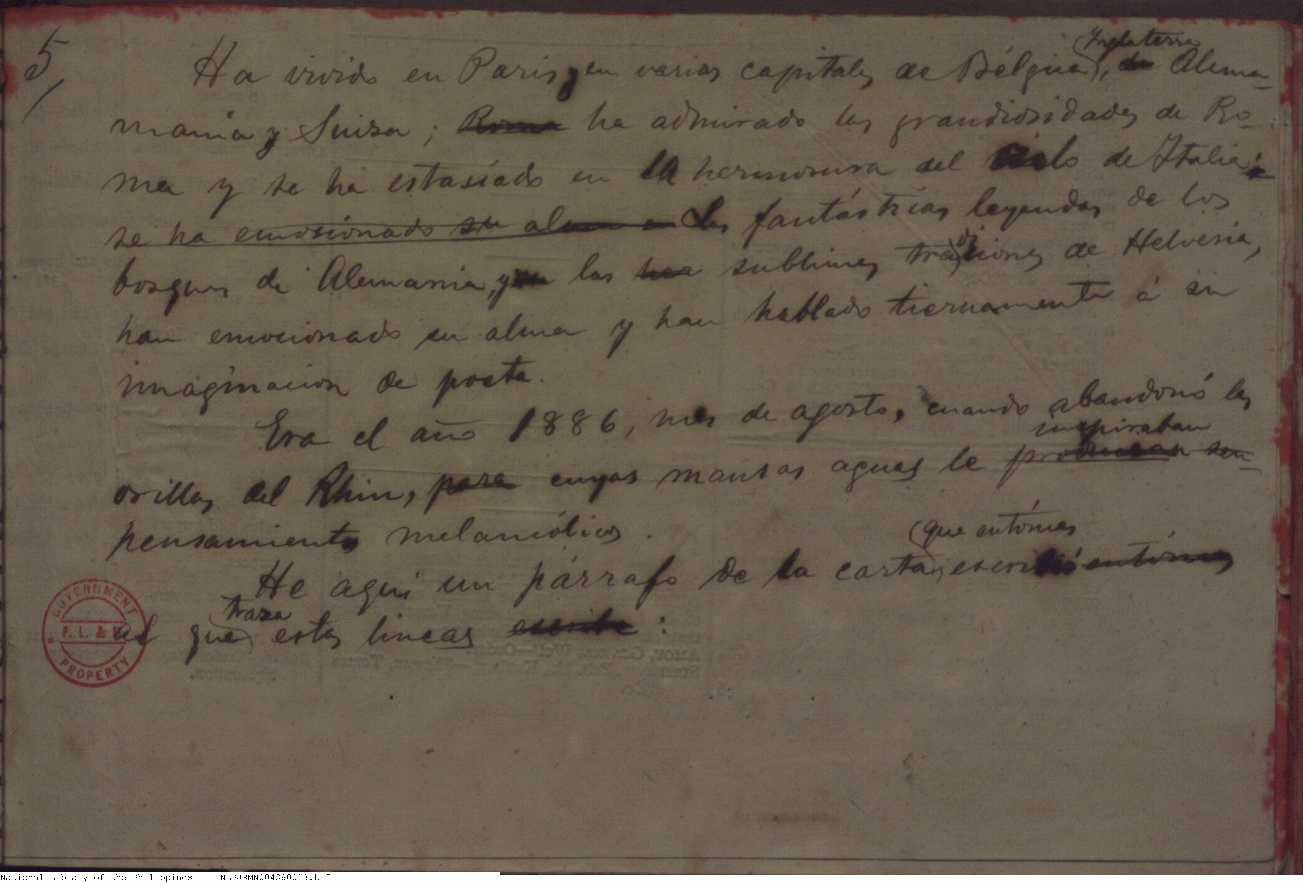 5/
Ha vivido en Paris y en varias capitales de Bélgica, Inglaterra, de Alema-
mania y Suiza; Roma ha admirado las grandiosidades de Ro-
ma y se ha estasiado en la hermosura del cielo de Italia;
se ha emosionado su alma en Las fantásticas leyendas de los
bosques de Alemania, y en las sublimes tradiciones de Helvesia,
han emocionado su alma y han hablado tiernamente á su
imaginacion de poeta.
Era el año 1886, mes de agosto, cuando abandonó las
orillas del Rhin, para cuyas mansas aguas le inspiraban
pensamientos melancólicos.
He aqui un párrafo de la carta que entónces escribió entónces
al que traza estas lineas escribe:
GOVERNMENT
P. L. & M.
PROPERTY
National Library of the Philippines